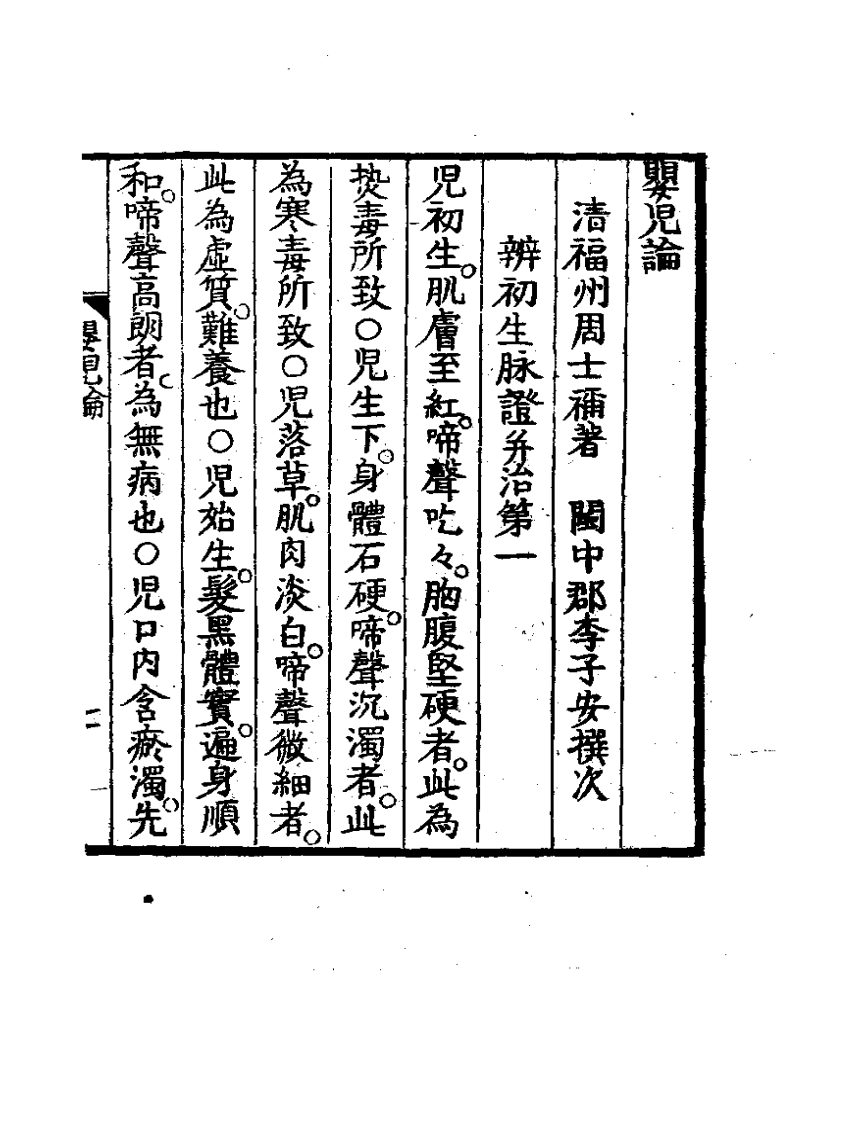 嬰児論
清福州周士禰著　閩中郡李子安撰次
辨初生脉證并治第一
児初生。肌膚至紅。啼聲吃々。胸腹堅硬者。此為
𤍠毒所致〇児生下。身體石硬。啼聲沉濁者。此
為寒毒所致〇児落草。肌肉淡白。啼聲微細者。
此為虛質。難養也〇児始生。髮黑體實。遍身順
和。啼聲高朗者。為無病也〇児口内含瘀濁。先
嬰児論
一